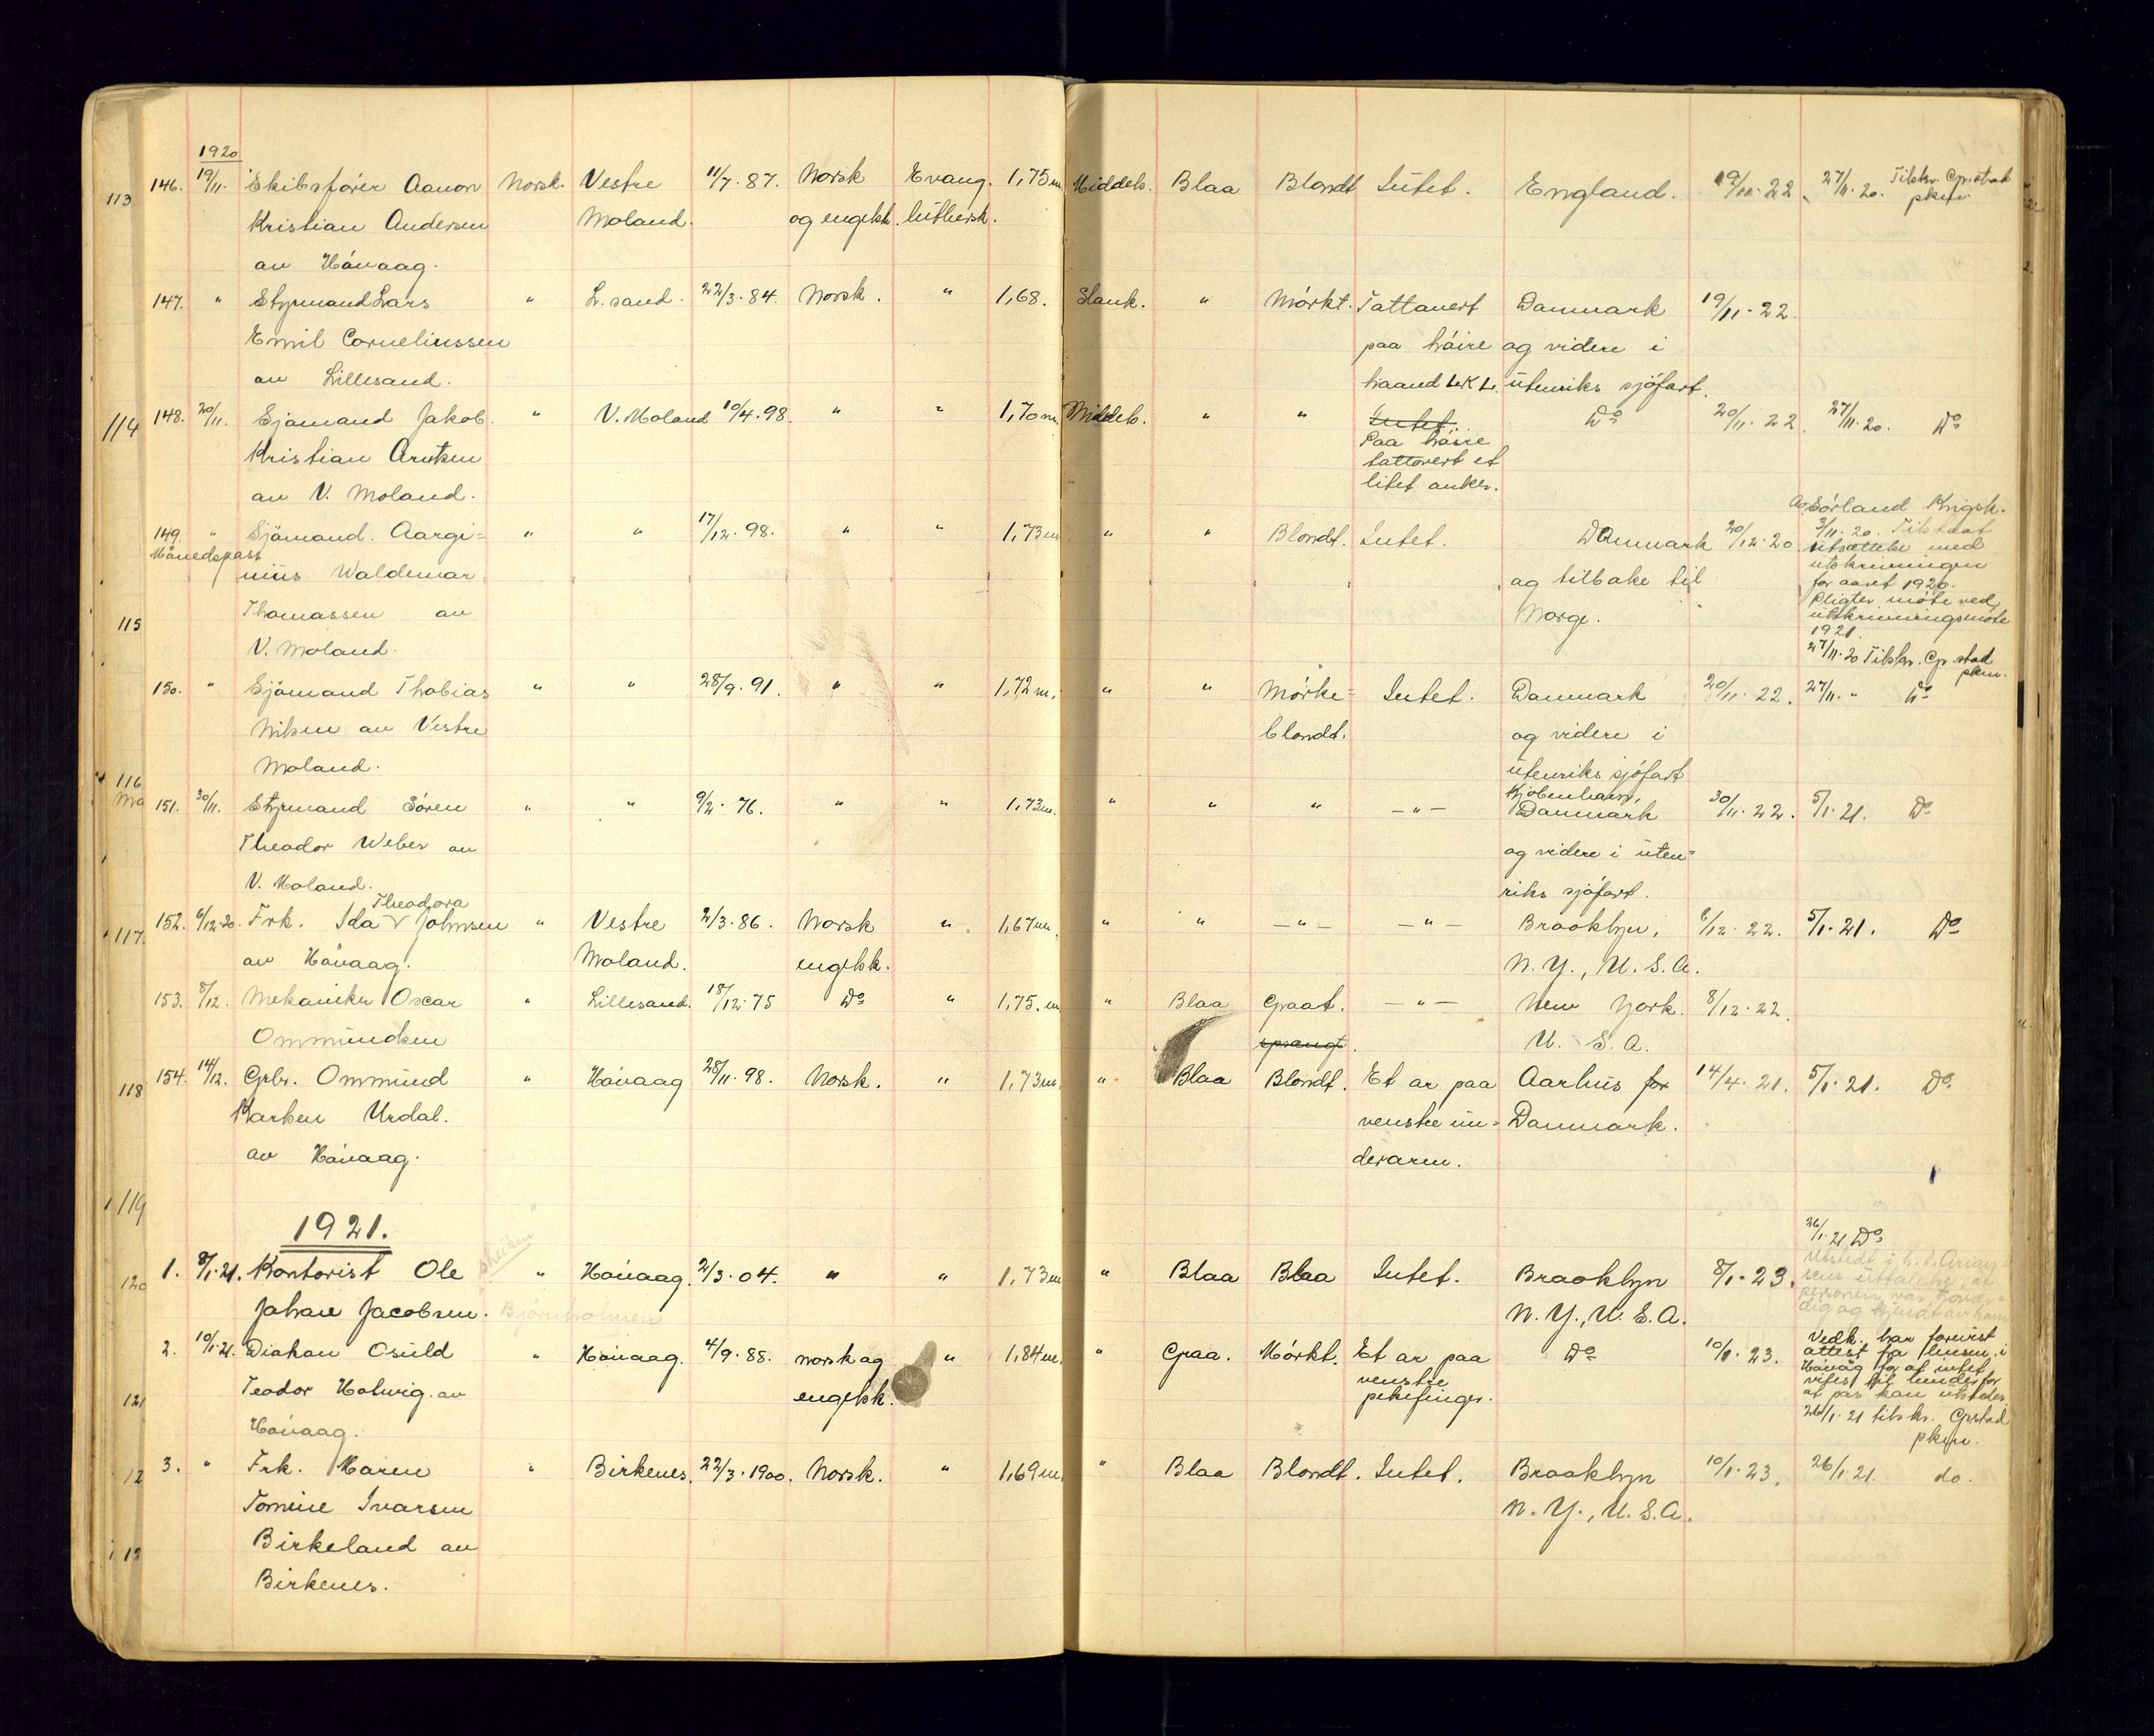 1920
146. 19/11. Skibsfører Aanon Norsk. Vestre 11/7. 87. Norsk Evang. 1,75 m Middels. Blaa Blondt Intet. England. 19/11. 22. 27/11. 20. Tilskr. Gr.stad
113 Kristian Andersen Moland. og engelsk. luthersk. pkm.
av Høvaag.
147. " Styrmand Lars " L. sand. 22/3. 84. Norsk. " 1,68. Slank. " Mørkt. Tattovert Danmark 19/11. 22.
Emil Corneliussen paa høire og videre i
av Lillesand. haand L.K.L. utenriks sjøfart.
114 148. 20/11. Sjømand Jakob " V. Moland 10/4. 98. " " 1,70 m. Middels. " " Intet. Do 20/11. 22. 27/11. 20. Do
Kristian Arntsen Paa høire
tattovert et
av V. Moland. litet anker.
149. " Sjømand Aargi= " " 17/12. 98. " " 1,73 m " " Blondt. Intet. Danmark 20/12. 20. Av Sørland Krigsk.
Månedspass nius Waldemar og tilbake til 3/11. 20. Tilstaat
115 Thomassen av Norge. utsættelse med
V. Moland. utskrivningen
for aaret 1920.
Pligter møte ved
utskrivningsmøte
1921.
27/11. 20 Tilskr. Gr. stad
pkm.
150. " Sjømand Thobias " " 28/9. 91. " " 1,72 m. " " Mørke= Intet. Danmark 20/11. 22. 27/11. " Do
Nilsen av Vestre blondt. og videre i
Moland. utenriks sjøfart
116 151. 30/11. Styrmand Søren " " 9/2. 76. " " 1,73 m. " " " – " – Kjøbenhavn, Danmark 30/11. 22. 5/1. 21. Do
Theodor Weber av og videre i uten=
V. Moland. riks sjøfart.
Theodora
117 152. 6/12. 20. Frk. Ida V Johnsen " Vestre 2/3. 86. Norsk " 1,67 m. " " – " – – " – Brooklyn, 6/12. 22. 5/1. 21. Do
av Høvaag. Moland. engelsk. N. Y., U. S. A.
153. 8/12. Mekaniker Oscar " Lillesand. 18/12. 75 Do " 1,75. m " Blaa Graat. – " – New York. 8/12. 22.
Ommundsen sprængt. U. S. A.
118 154. 14/12. Grbr. Ommund " Høvaag 28/11. 98. Norsk. " 1,73 m. " Blaa Blondt. Et ar paa Aarhus for 14/4. 21. 5/1. 21. Do
Karsen Urdal. venstre un= Danmark.
av Høvaag. derarm.
119
1921.
26/1. 21 Do
120 1. 8/1. 21. Kontorist Ole " Høvaag. 2/3. 04. " " 1,73 m " Blaa Blaa Intet. Brooklyn 8/1. 23.
Johan Jacobsen. Bjørnholmen N. Y., U. S. A.
2. 10/1. 21. Diakon Osuld " Høvaag. 4/9. 88. norsk og " 1,84 m. " Graa. Mørkt. Et ar paa Do 10/1. 23. Vedk. har forevist
121 Teodor Hotvig av engelsk. venstre attest fra lensm. i
pekefinger. Høvåg for at intet
Høvaag. vites til hinder for
at pas kan utstedes
26/1. 21 tilskr. Grstad
pkm.
12 3. " Frk. Maren " Birkenes. 22/3. 1900. Norsk. " 1,69 m. " Blaa Blondt. Intet. Brooklyn 10/1. 23. 26/1. 21. do.
Tomine Ivarsen N. Y., U. S. A.
12 Birkeland av
Birkenes.